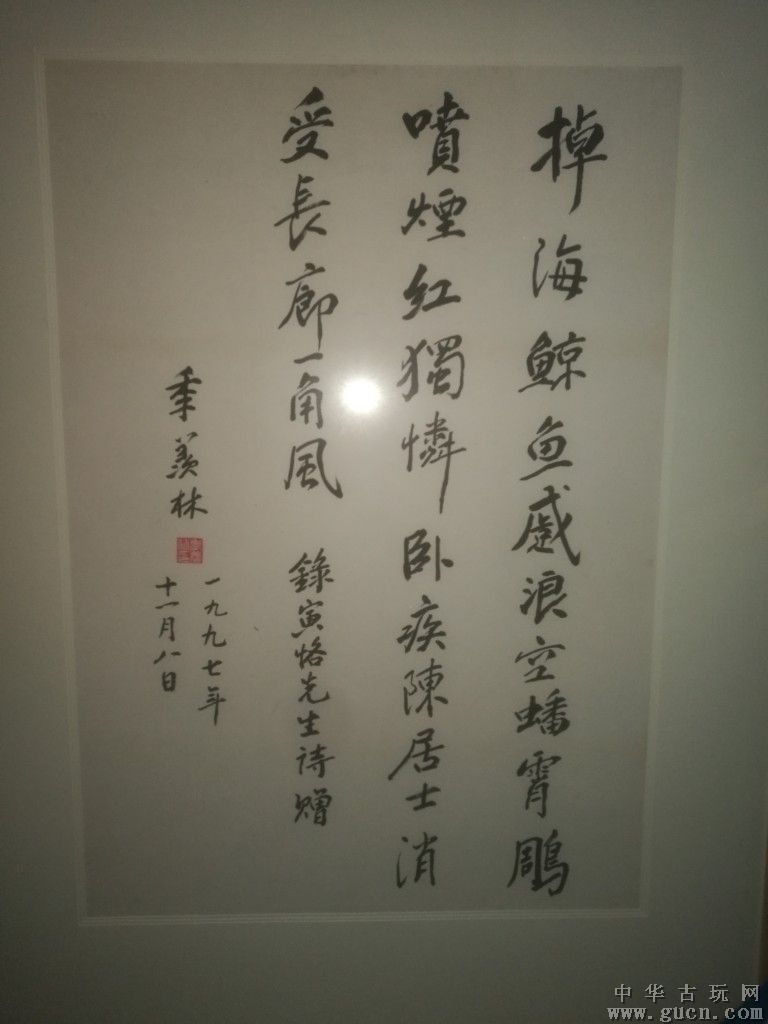 掉海鲸魚戲浪空蟠霄鵰
噴煙紅獨憐卧疾陳居士消
受長廊一角風
錄寅恪先生诗赠
季羨林
一九九七年
十一月八日
中华古玩网
www.gucn.com